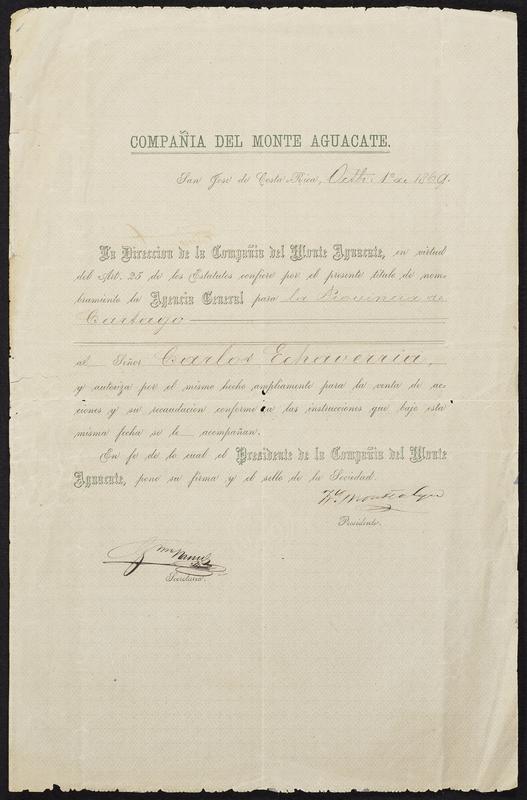 COMPAÑIA DEL MONTE AGUACATE.
San José de Costa Rica, Octb. 1º de 1869.
La Direccion de la Compañia del Monte Aguacate, en virtud
del Art. 25 de los Estatutos confiere por el presente título de nom-
bramiento la Agencia General para la Provincia de
Cartago
al Señor Carlos Echaverria,
y autoriza por el mismo hecho ampliamente para la venta de ac-
ciones y su recaudacion conforme á las instrucciones que bajo esta
misma fecha se le acompañan.
En fe de lo cual el Presidente de la Compañia del Monte
Aguacate, pone su firma y el sello de la Sociedad.
Presidente.
Secretario.